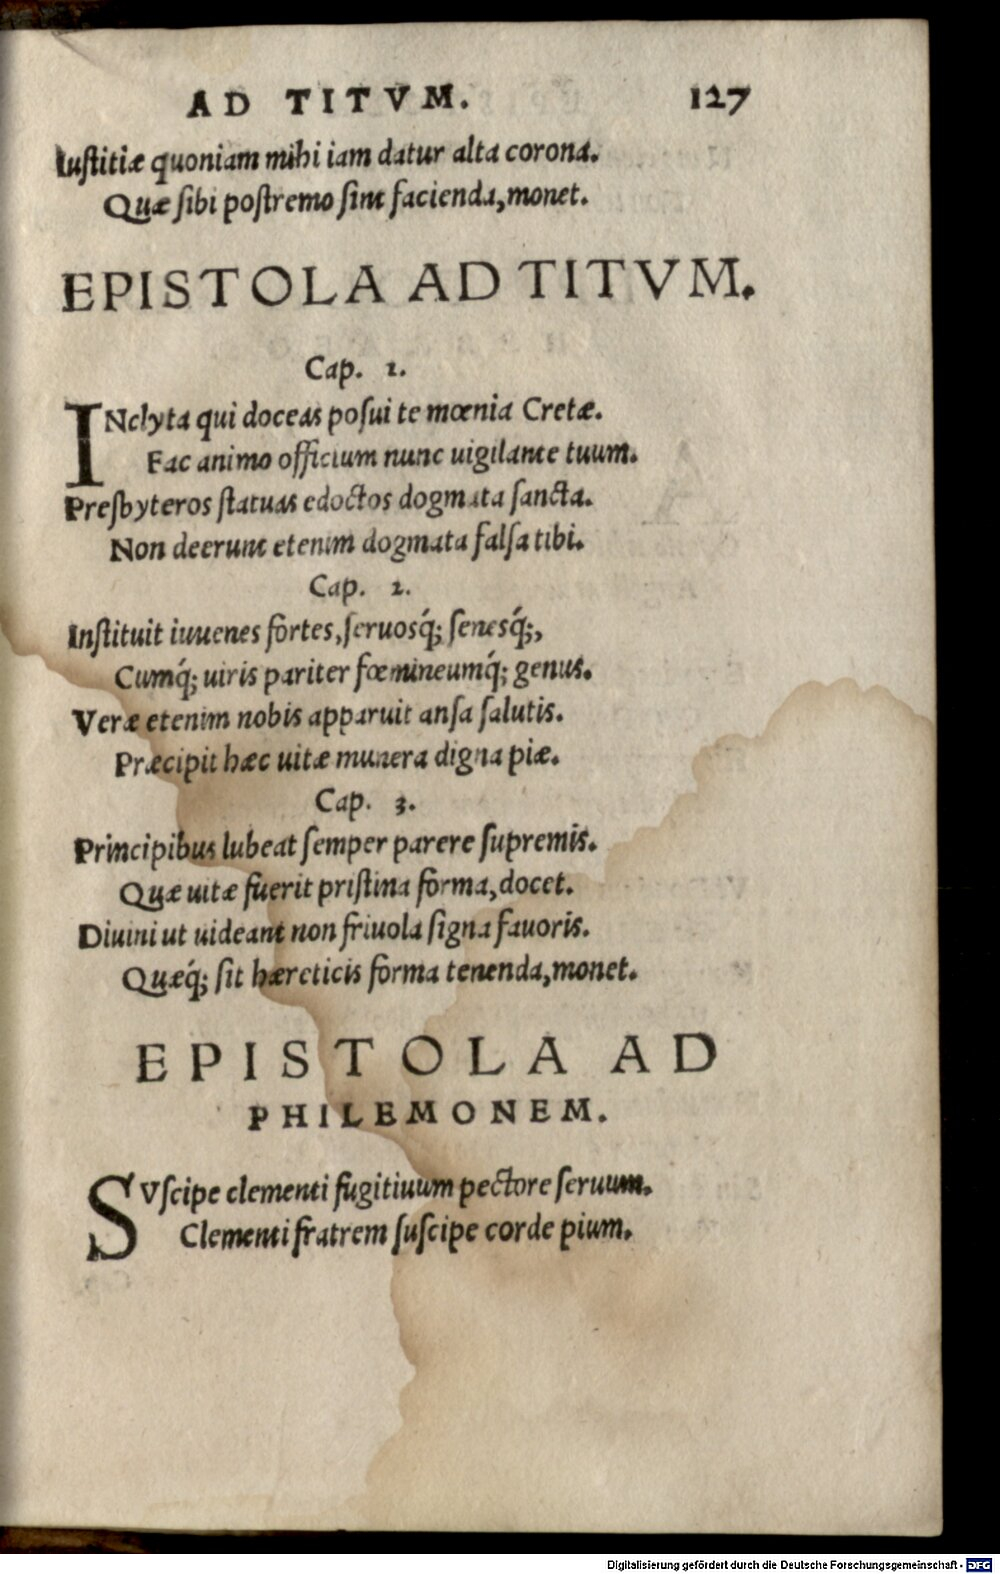 AD TITVM. 127
Iuſtitiæ quoniam mihi iam datur alta corona.
Quæ ſibi poſtremo ſint facienda, monet.
EPISTOLA AD TITVM.
Cap. 1.
INclyta qui doceas poſui te mœnia Cretæ.
Fac animo officium nunc uigilante tuum.
Preſbyteros ſtatuas edoctos dogmata ſancta.
Non deerunt etenim dogmata falſa tibi.
Cap. 2.
Inſtituit iuuenes fortes, ſeruosq́; ſenesq́;,
Cumq́; uiris pariter fœmineumq́; genus.
Veræ etenim nobis apparuit anſa ſalutis.
Præcipit hæc uitæ munera digna piæ.
Cap. 3.
Principibus lubeat ſemper parere ſupremis.
Quæ uitæ fuerit priſtina forma, docet.
Diuini ut uideant non friuola ſigna fauoris.
Quæq́; ſit hæreticis forma tenenda, monet.
EPISTOLA AD
PHILEMONEM.
SVſcipe clementi fugitiuum pectore ſeruum.
Clementi fratrem ſuſcipe corde pium.
Digitalisierung gefördert durch die Deutsche Forschungsgemeinschaft - DFG